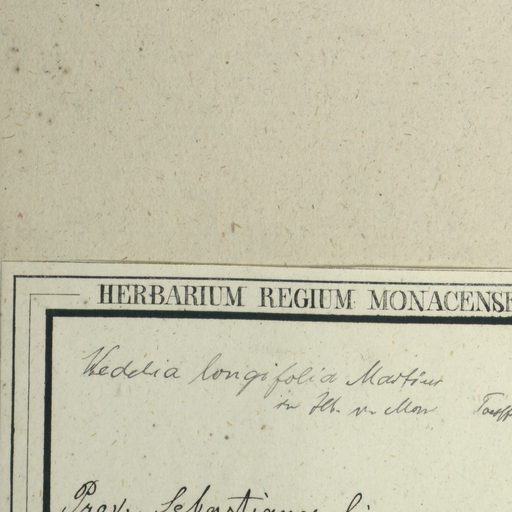 HERBARIUM REGIUM MONACENSE
Wedelia longifolia Martius
in Hb. v. Mon
Prov. Sebastianop.